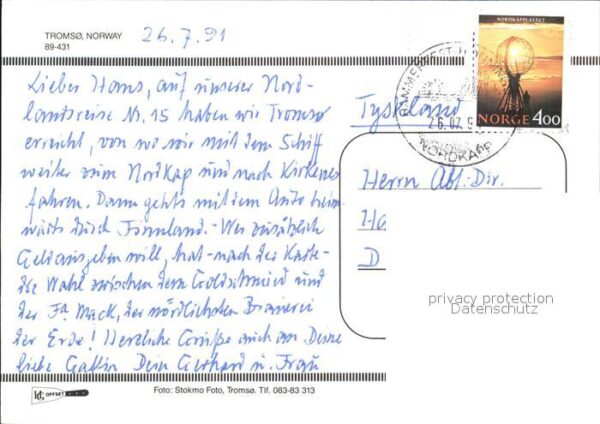 TROMSØ, NORWAY
89-431
26.7.91
Lieber Hans, auf unserer Nord-
landreise Nr. 15 haben wir Tromsø
erreicht, von wo wir mit dem Schiff
weiter zum Nordkap und nach Kirkenes
fahren. Dann gehts mit dem Auto heim-
wärts durch Finnland. - Wer zusätzlich
Geld ausgeben will, hat - nach der Karte -
die Wahl zwischen dem Goldschmied und
der Fa Mack, der nördlichsten Brauerei
der Erde! Herzliche Grüße auch an Deine
liebe Gattin Dein Gerhard u. Frau
NORDKAPPLATÅET
NORGE 400
26.07.9
NORDKAPP
Tyskland
Herrn Abt. Dir.
Ha
D
privacy protection
Datenschutz
OFFSET
Foto: Stokmo Foto, Tromsø. Tlf. 083-83 313